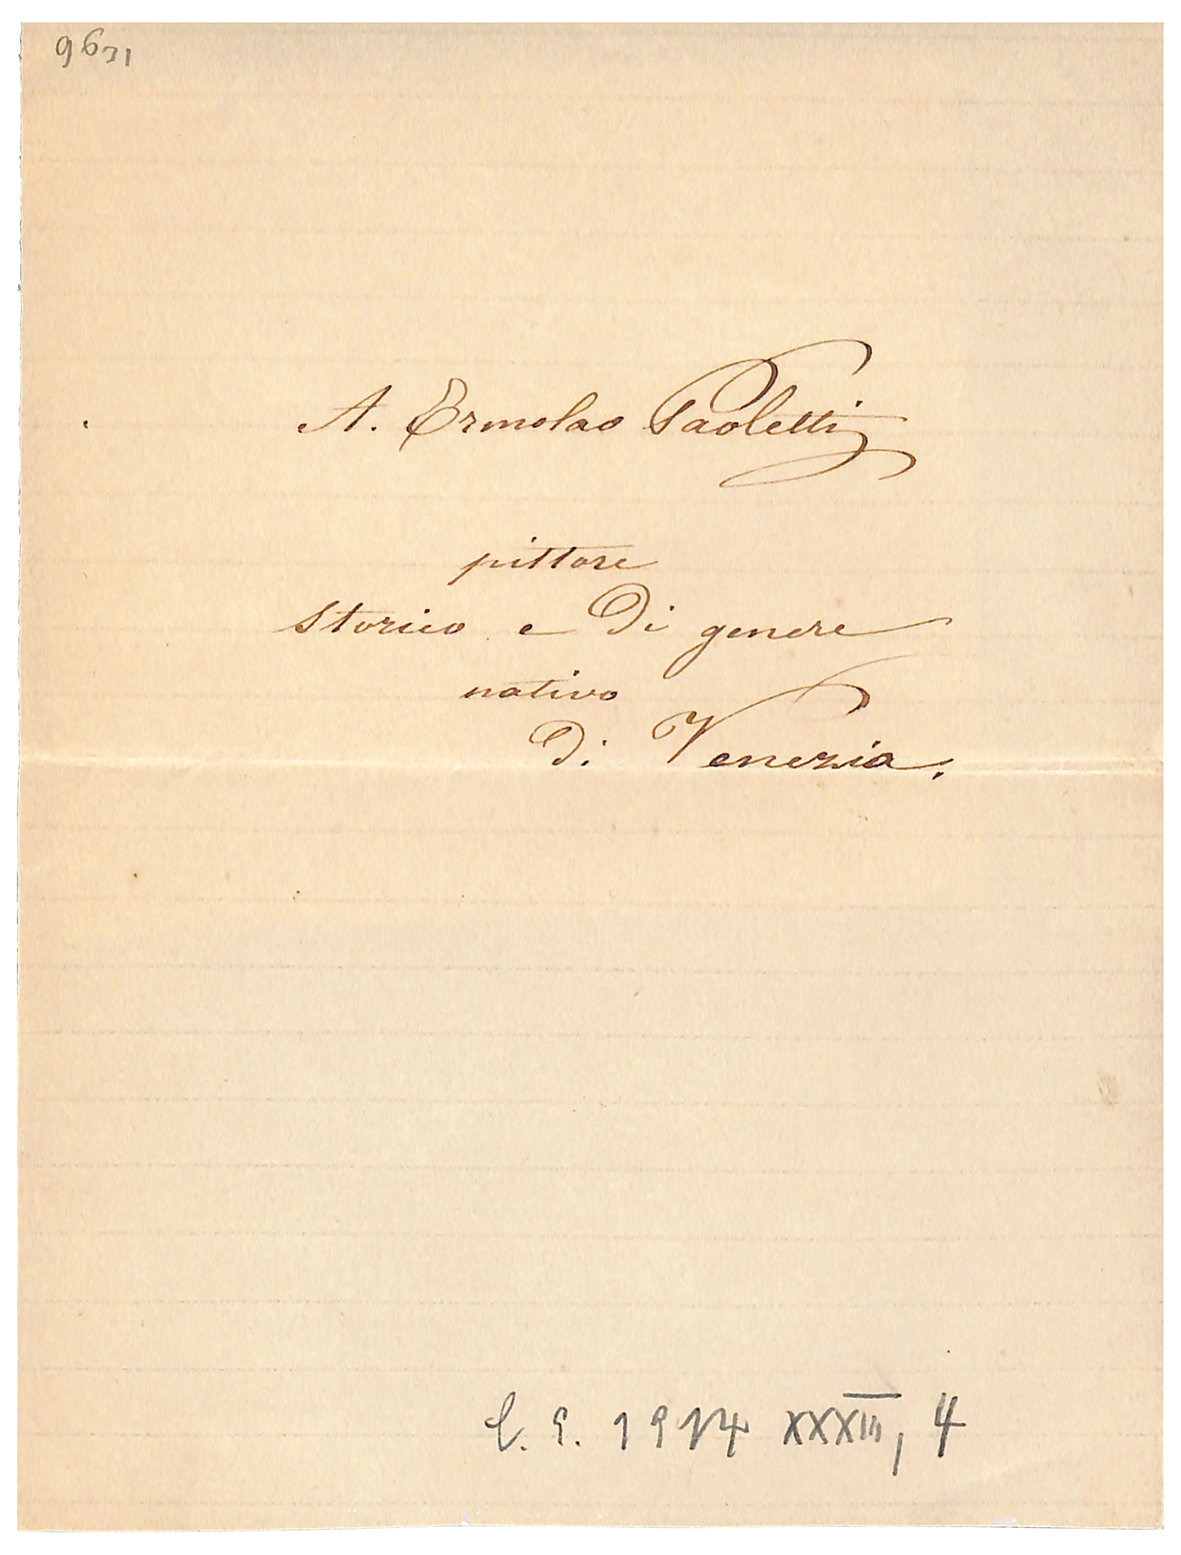 9631
A. Ermolao Paoletti
pittore
Storico e Di genere
nativo
Di Venezia.
1914 XXXIII, 4